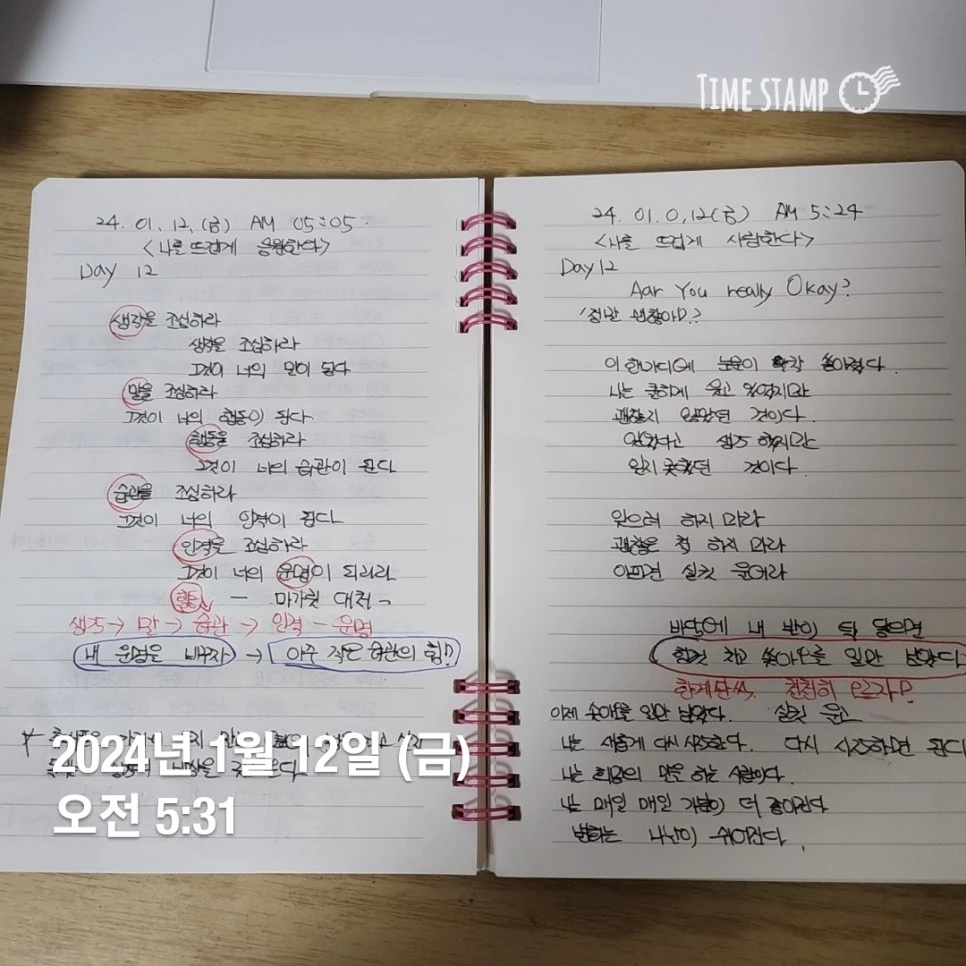 TIME STAMP
24. 01. 12. (금) AM 05:05
<나를 뜨겁게 응원한다>
Day 12
생각을 조심하라
생각을 조심하라
그것이 너의 말이 된다
말을 조심하라
그것이 너의 행동이 된다
행동을 조심하라
그것이 너의 습관이 된다
습관을 조심하라
그것이 너의 인격이 된다
인격을 조심하라
그것이 너의 운명이 되리라
행동 - 마가렛 대처 -
→ 말 → 습관 → 인격 - 운명
내 운명을 바꾸자 → 아주 작은 습관의 힘!!
2024년 1월 12일 (금)
오전 5:31
24. 01. 0, 12 (금) AM 5:24
<나를 뜨겁게 사랑한다>
Day 12
Aar You really Okay?
'정말 괜찮아?'
이 한마디에 눈물이 왈칵 쏟아졌다.
나는 쿨하게 웃고 있었지만
괜찮지 않았던 것이다.
잊었다고 생각 했지만
잊지 못했던 것이다.
잊으려 하지 마라
괜찮은 척 하지 마라
아프면 실컷 울어라
바닥에 내 발이 턱 닿으면
힘껏 차고 솟아오를 일만 남았다
한계단씩, 천천히
이제 솟아오를 일만 남았다. 실컷 울고
나는 새롭게 다시 시작한다. 다시 시작하면 된다
나는 희망의 말을 하는 사람이다.
나는 매일 매일 기분이 더 좋아진다
나날이 쉬워진다.